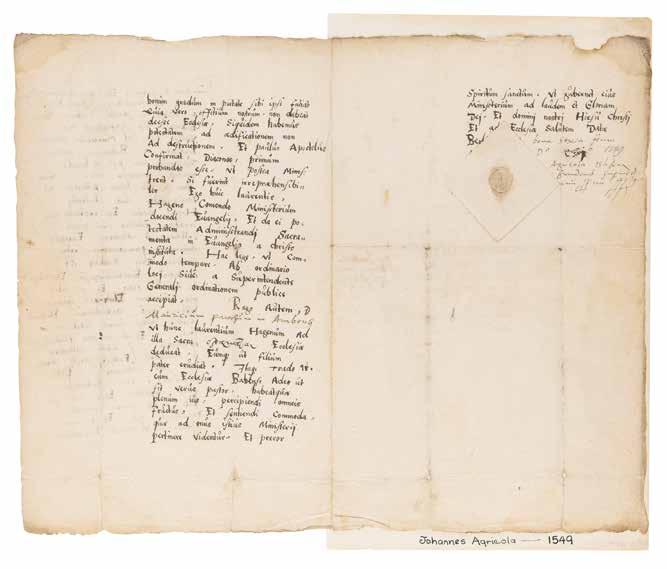 bonum gradum in pietate sibi ipsi faciat
Quia vero officium nostrum non debeat
deesse Ecclesiae. Siquidem habemus
potestatem ad aedificationem non
Ad destructionem. Et paulus Apostolus
Confirmat Diaconos primum
probandos esse. Ut postea Minis
trent. Si fuerint irreprehensibi-
les Ego huic laurentio,
Hageno Comendo Ministerium
docendi Euangelij. Et do ei po-
testatem Administrandi Sacra-
menta in Euangelio a christo
instituta. Hac lege. Ut Com-
modo tempore. Ab ordinario
loci Siue a Superintendente
Generalj ordinationem publice
accipiat. Rogo Autem, D
Mauricium
Ut hunc laurentium Hagenum Ad
illa Sacra Ecclesiae
deducat. Eumque ut filium
pater erudiat. Itaque Trado
cum Ecclesiae Ades ut
sit verus pastor. habeatque
plenum ius percipiendi omneis
fructus. Et sentiendi Commoda.
quae ad onus istius Ministerij
pertinere videntur. Et precor
Spiritum sanctum. Ut gubernet eius
Ministerium ad laudem et Gloriam
Dej. Et dominj nostri Hiesu Christj
Et ad Ecclesiae Salutem Datae
1549
Agricola
Johannes Agricola — 1549